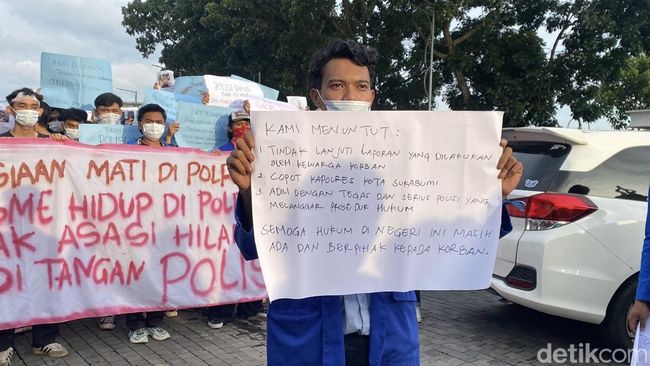 KAMI MENUNTUT :
1. TINDAK LANJUTI LAPORAN YANG DILAKUKAN
OLEH KELUARGA KORBAN
2. COPOT KAPOLRES KOTA SUKABUMI
3. ADILI DENGAN TUGAS DAN SERIUS POLISI YANG
MELANGGAR PROSEDUR HUKUM
SEMOGA HUKUM DI NEGERI INI MASIH
ADA DAN BERPIHAK KEPADA KORBAN.
SIAAN MATI DI POLR
SME HIDUP DI POL
AK ASASI HILA
DI TANGAN POLIS
detikcom